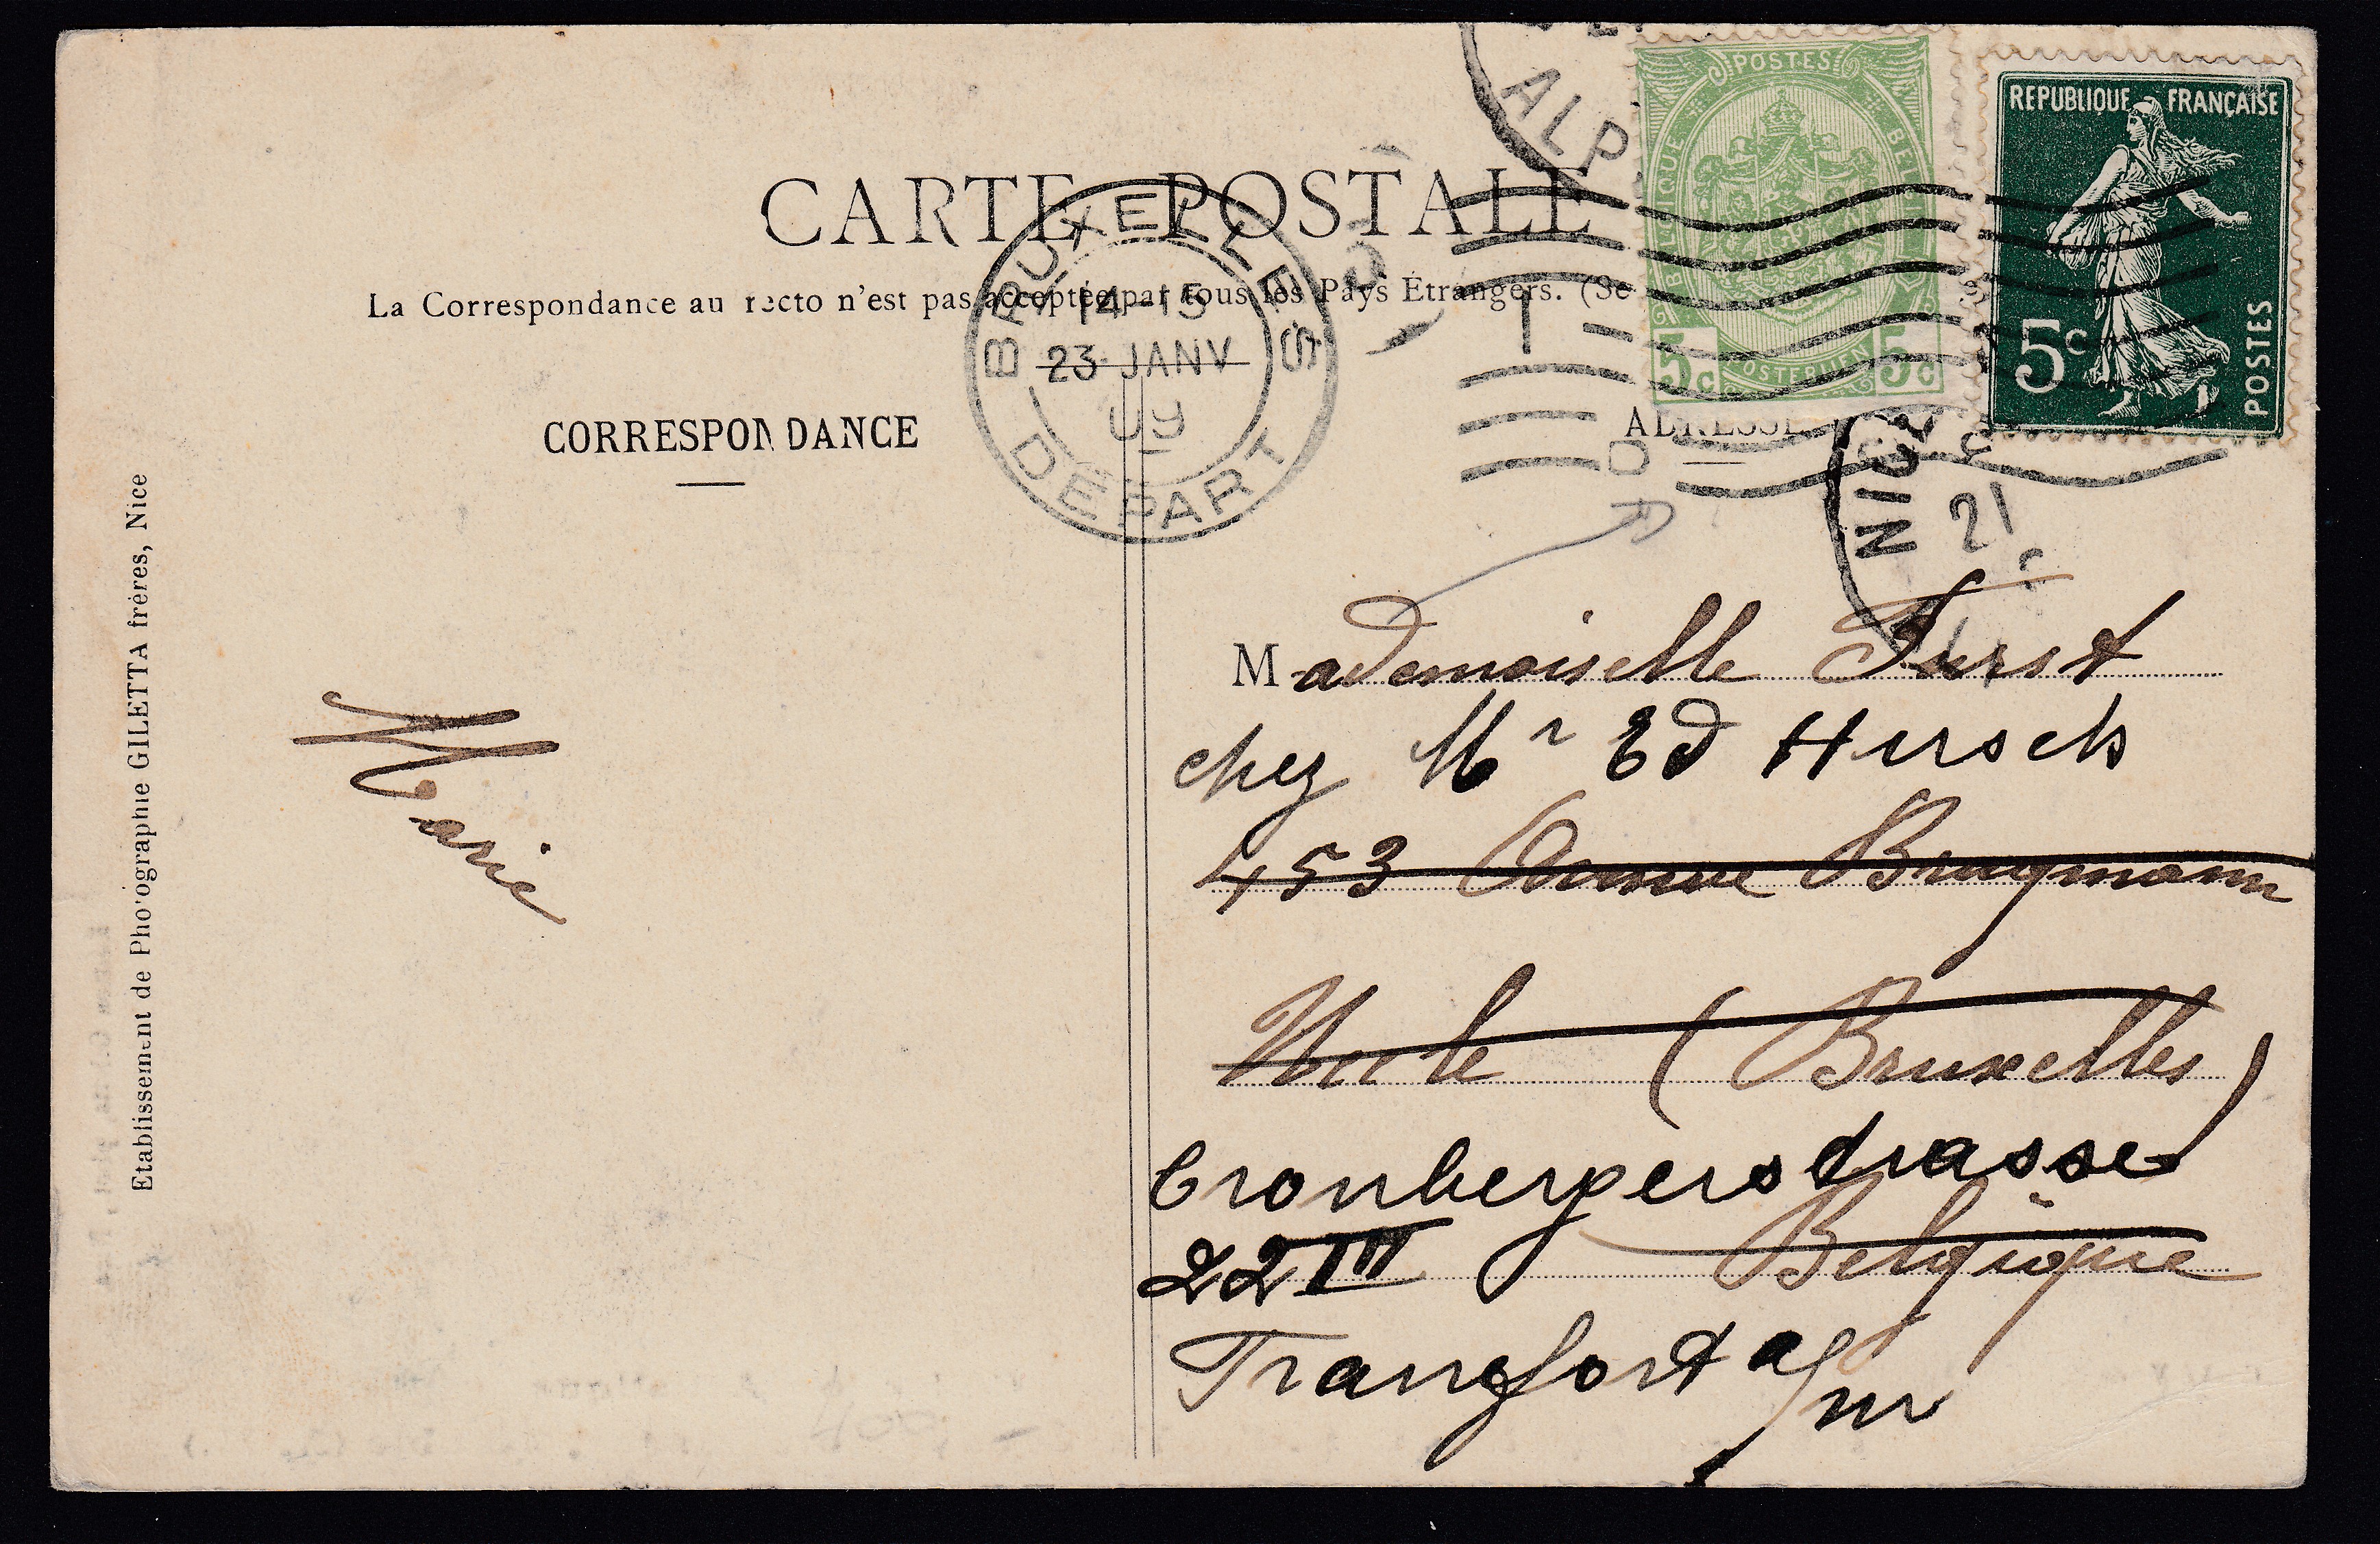 CARTE POSTALE
La Correspondance au recto n'est pas acceptée par tous les Pays Étrangers. (Se
CORRESPONDANCE
ADRESSE
BRUXELLES
14-15
23 JANV
09
DÉPART
ALP
POSTES
BELGIQUE
5c 5c
REPUBLIQUE FRANÇAISE
5c
POSTES
NICE
21
D
Mademoiselle Furst
chez Mr Ed Hirsch
453 Avenue Brugmann
Uccle (Bruxelles)
Cronbergerstrasse
22 III
Belgique
Frangfort a/m
Marie
Etablissement de Photographie GILETTA frères, Nice